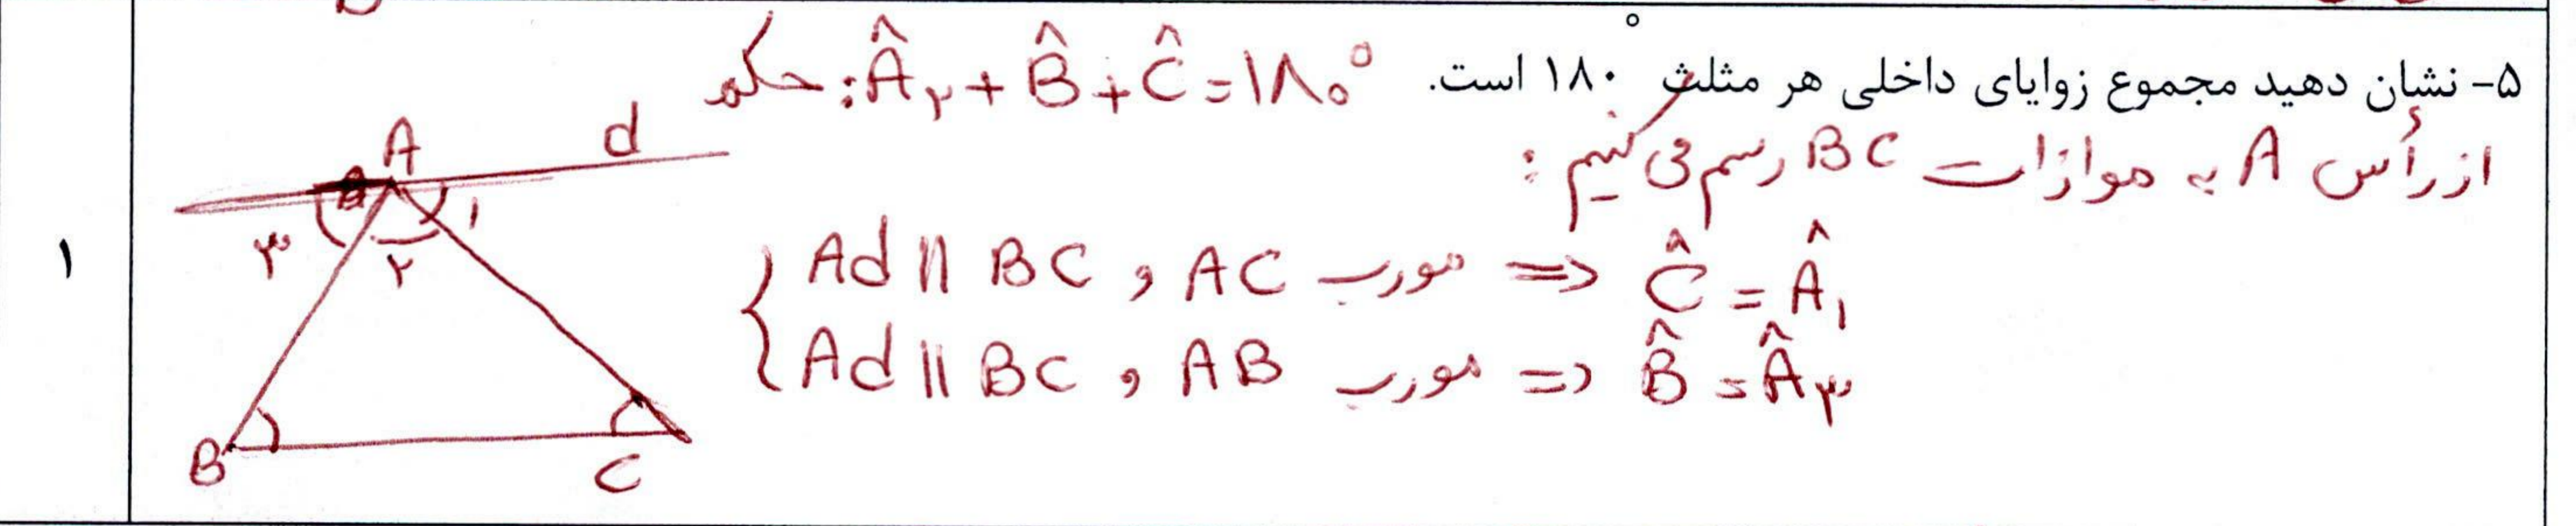 ۵- نشان دهید مجموع زوایای داخلی هر مثلث ۱۸۰° است. حکم: Â۲ + B̂ + Ĉ = ۱۸۰°
از رأس A به موازات BC رسم می کنیم:
Ad || BC , AC مورب => Ĉ = Â۱
Ad || BC , AB مورب => B̂ = Â۳
A
d
۱
۲
۳
B
C
۱